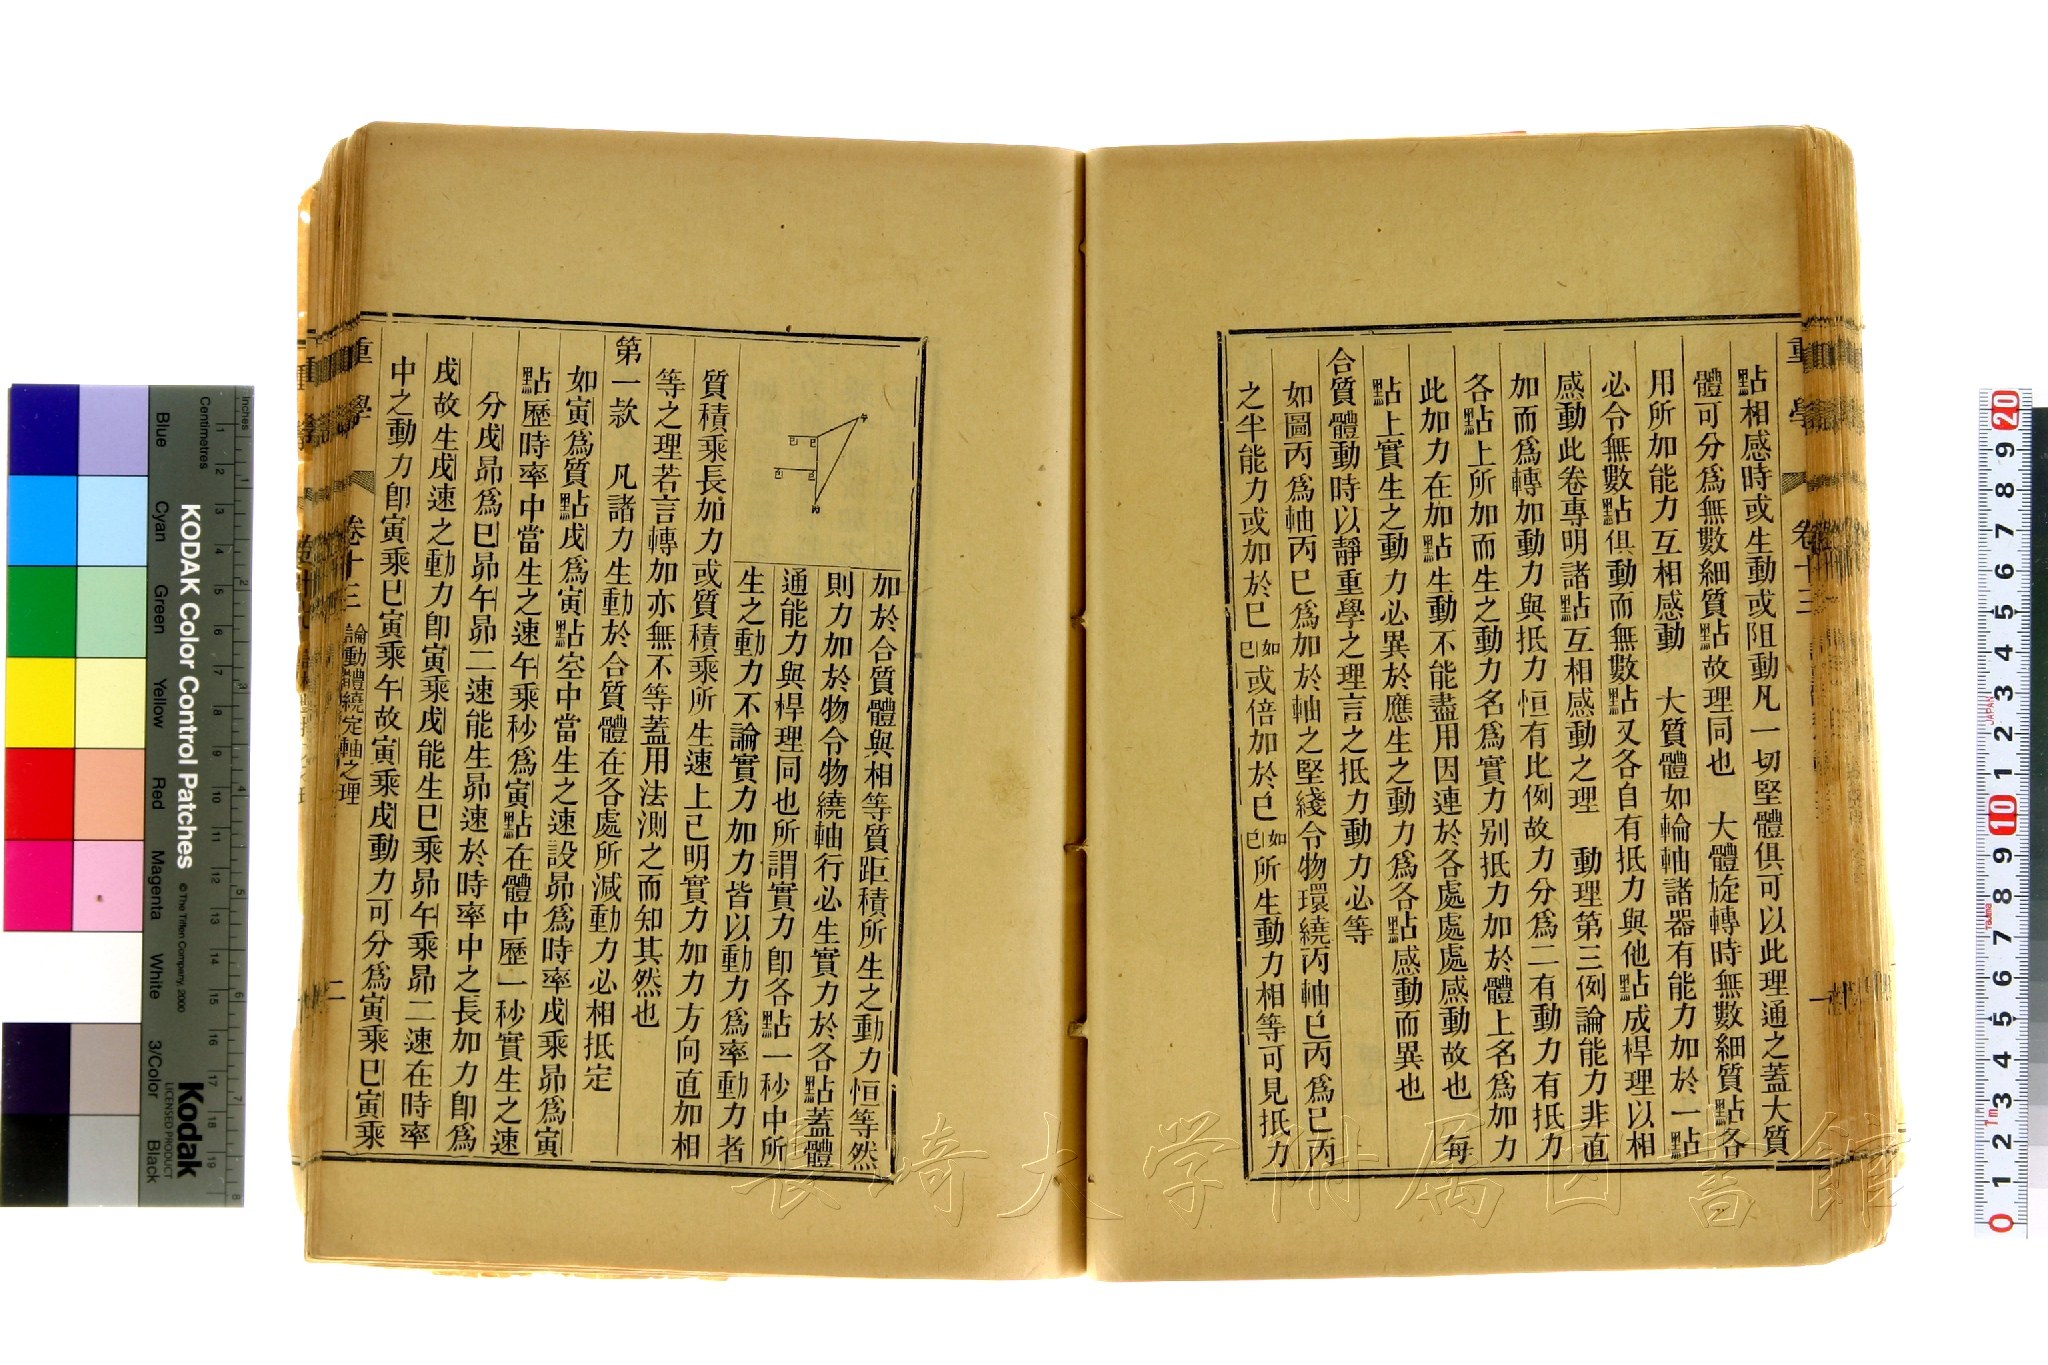 點相感時或生動或阻動凡一切堅體俱可以此理通之蓋大質
體可分爲無數細質點故理同也　大體旋轉時無數細質點各
用所加能力互相感動　大質體如輪軸諸器有能力加於一點
必令無數點俱動而無數點又各自有抵力與他點成桿理以相
感動此卷專明諸點互相感動之理　動理第三例論能力非直
加而爲轉加動力與抵力恒有比例故力分爲二有動力有抵力
各點上所加而生之動力名爲實力別抵力加於體上名爲加力
此加力在加點生動不能盡用因連於各處處處感動故也　每
點上實生之動力必異於應生之動力爲各點感動而異也
合質體動時以靜重學之理言之抵力動力必等
如圖丙爲軸丙巳爲加於軸之堅綫令物環繞丙軸巳丙爲巳丙
之半能力或加於巳如巳或倍加於巳如巳所生動力相等可見抵力
加於合質體與相等質距積所生之動力恒等然
則力加於物令物繞軸行必生實力於各點蓋體
通能力與桿理同也所謂實力即各點一秒中所
生之動力不論實力加力皆以動力爲率動力者
質積乘長加力或質積乘所生速上已明實力加力方向直加相
等之理若言轉加亦無不等蓋用法測之而知其然也
第一款　凡諸力生動於合質體在各處所減動力必相抵定
如寅爲質點戌爲寅點空中當生之速設昴爲時率戌乘昴爲寅
點歷時率中當生之速午乘秒爲寅點在體中歷一秒實生之速
分戌昴爲巳昴午昴二速能生昴速於時率中之長加力即爲
戌故生戌速之動力即寅乘戌能生巳乘昴午乘昴二速在時率
中之動力即寅乘巳寅乘午故寅乘戌動力可分爲寅乘巳寅乘
重學　卷十三　論動體繞定軸之理　二
KODAK Color Control Patches
© The Tiffen Company, 2000
Kodak
LICENSED PRODUCT
Blue Cyan Green Yellow Red Magenta White 3/Color Black
Centimetres
Inches
長崎大学附属図書館